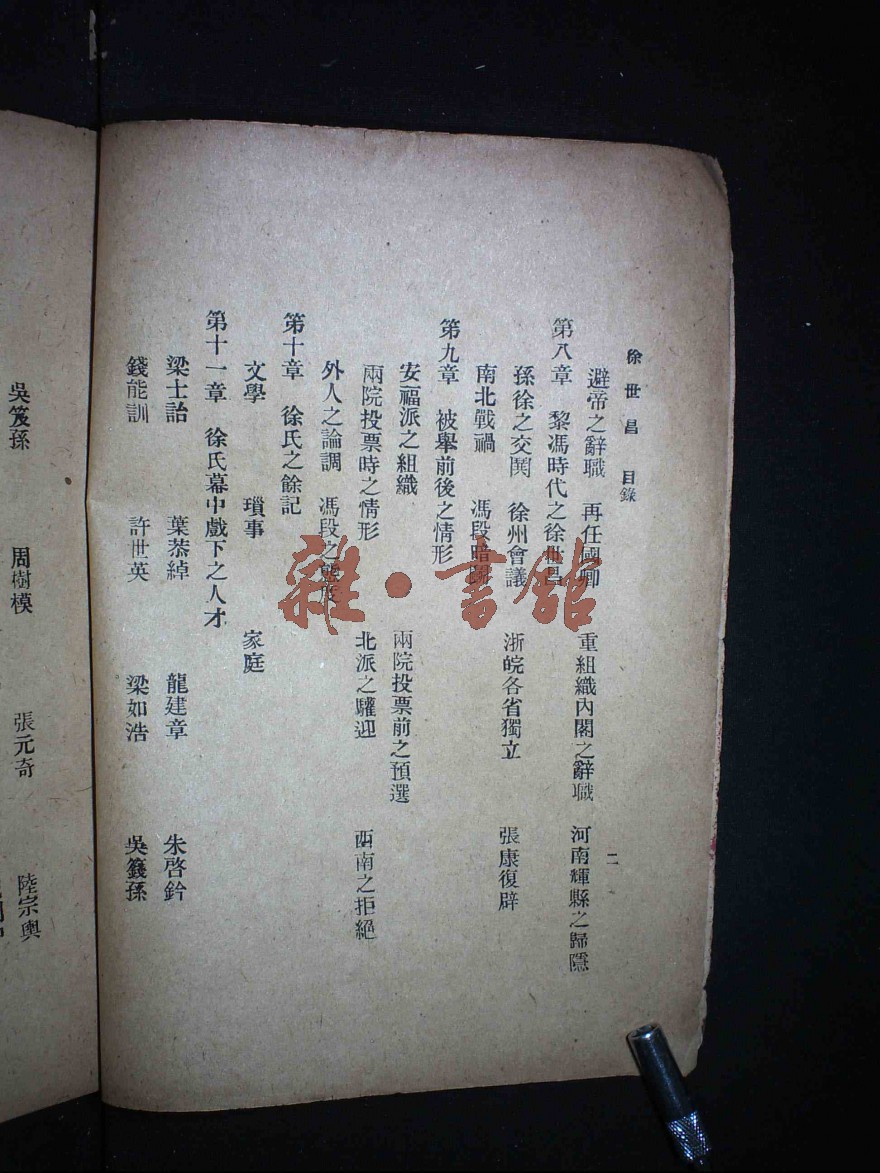 徐世昌 目錄 二
避帝之辭職 再任國卿 重組織內閣之辭職 河南輝縣之歸隱
第八章 黎馮時代之徐世昌
孫徐之交鬨 徐州會議 浙皖各省獨立 張康復辟
南北戰禍 馮段暗歸
第九章 被舉前後之情形
安福派之組織 兩院投票前之預選
兩院投票時之情形 北派之驩迎 西南之拒絕
外人之論調 馮段之態度
第十章 徐氏之餘記
文學 瑣事 家庭
第十一章 徐氏幕中戲下之人才
梁士詒 葉恭綽 龍建章 朱啓鈐
錢能訓 許世英 梁如浩 吳籛孫
吳笈孫 周樹模 張元奇 陸宗輿
雜·書館